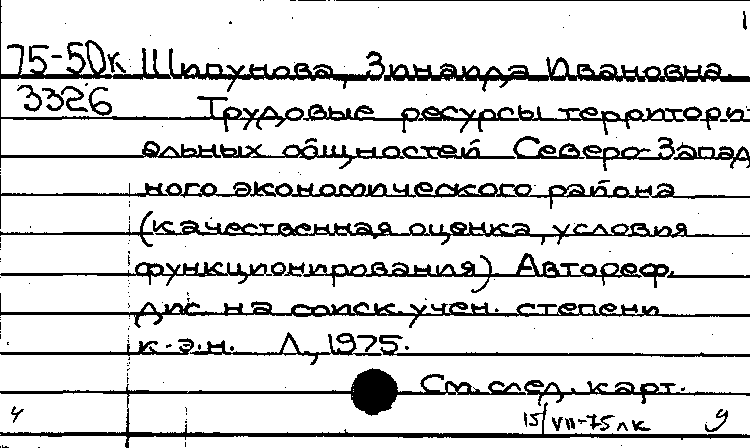 1
75-50к Шипунова, Зинаида Ивановна
3326 Трудовые ресурсы территори-
альных общностей Северо-Запад
ного экономического района
(качественная оценка, условия
функционирования). Автореф.
дис. на соиск. учен. степени
к.э.н. Л., 1975.
См. след. карт.
4 15/VII-75 лк 9